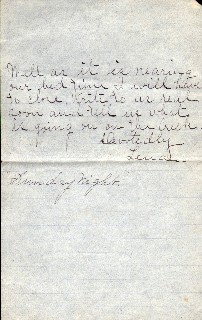 Well as it is nearing
our bed time I will have
to close. Write to us real
soon and tell us what
is going on on Tar
Devotedly
Lena.
"Sunday Night."